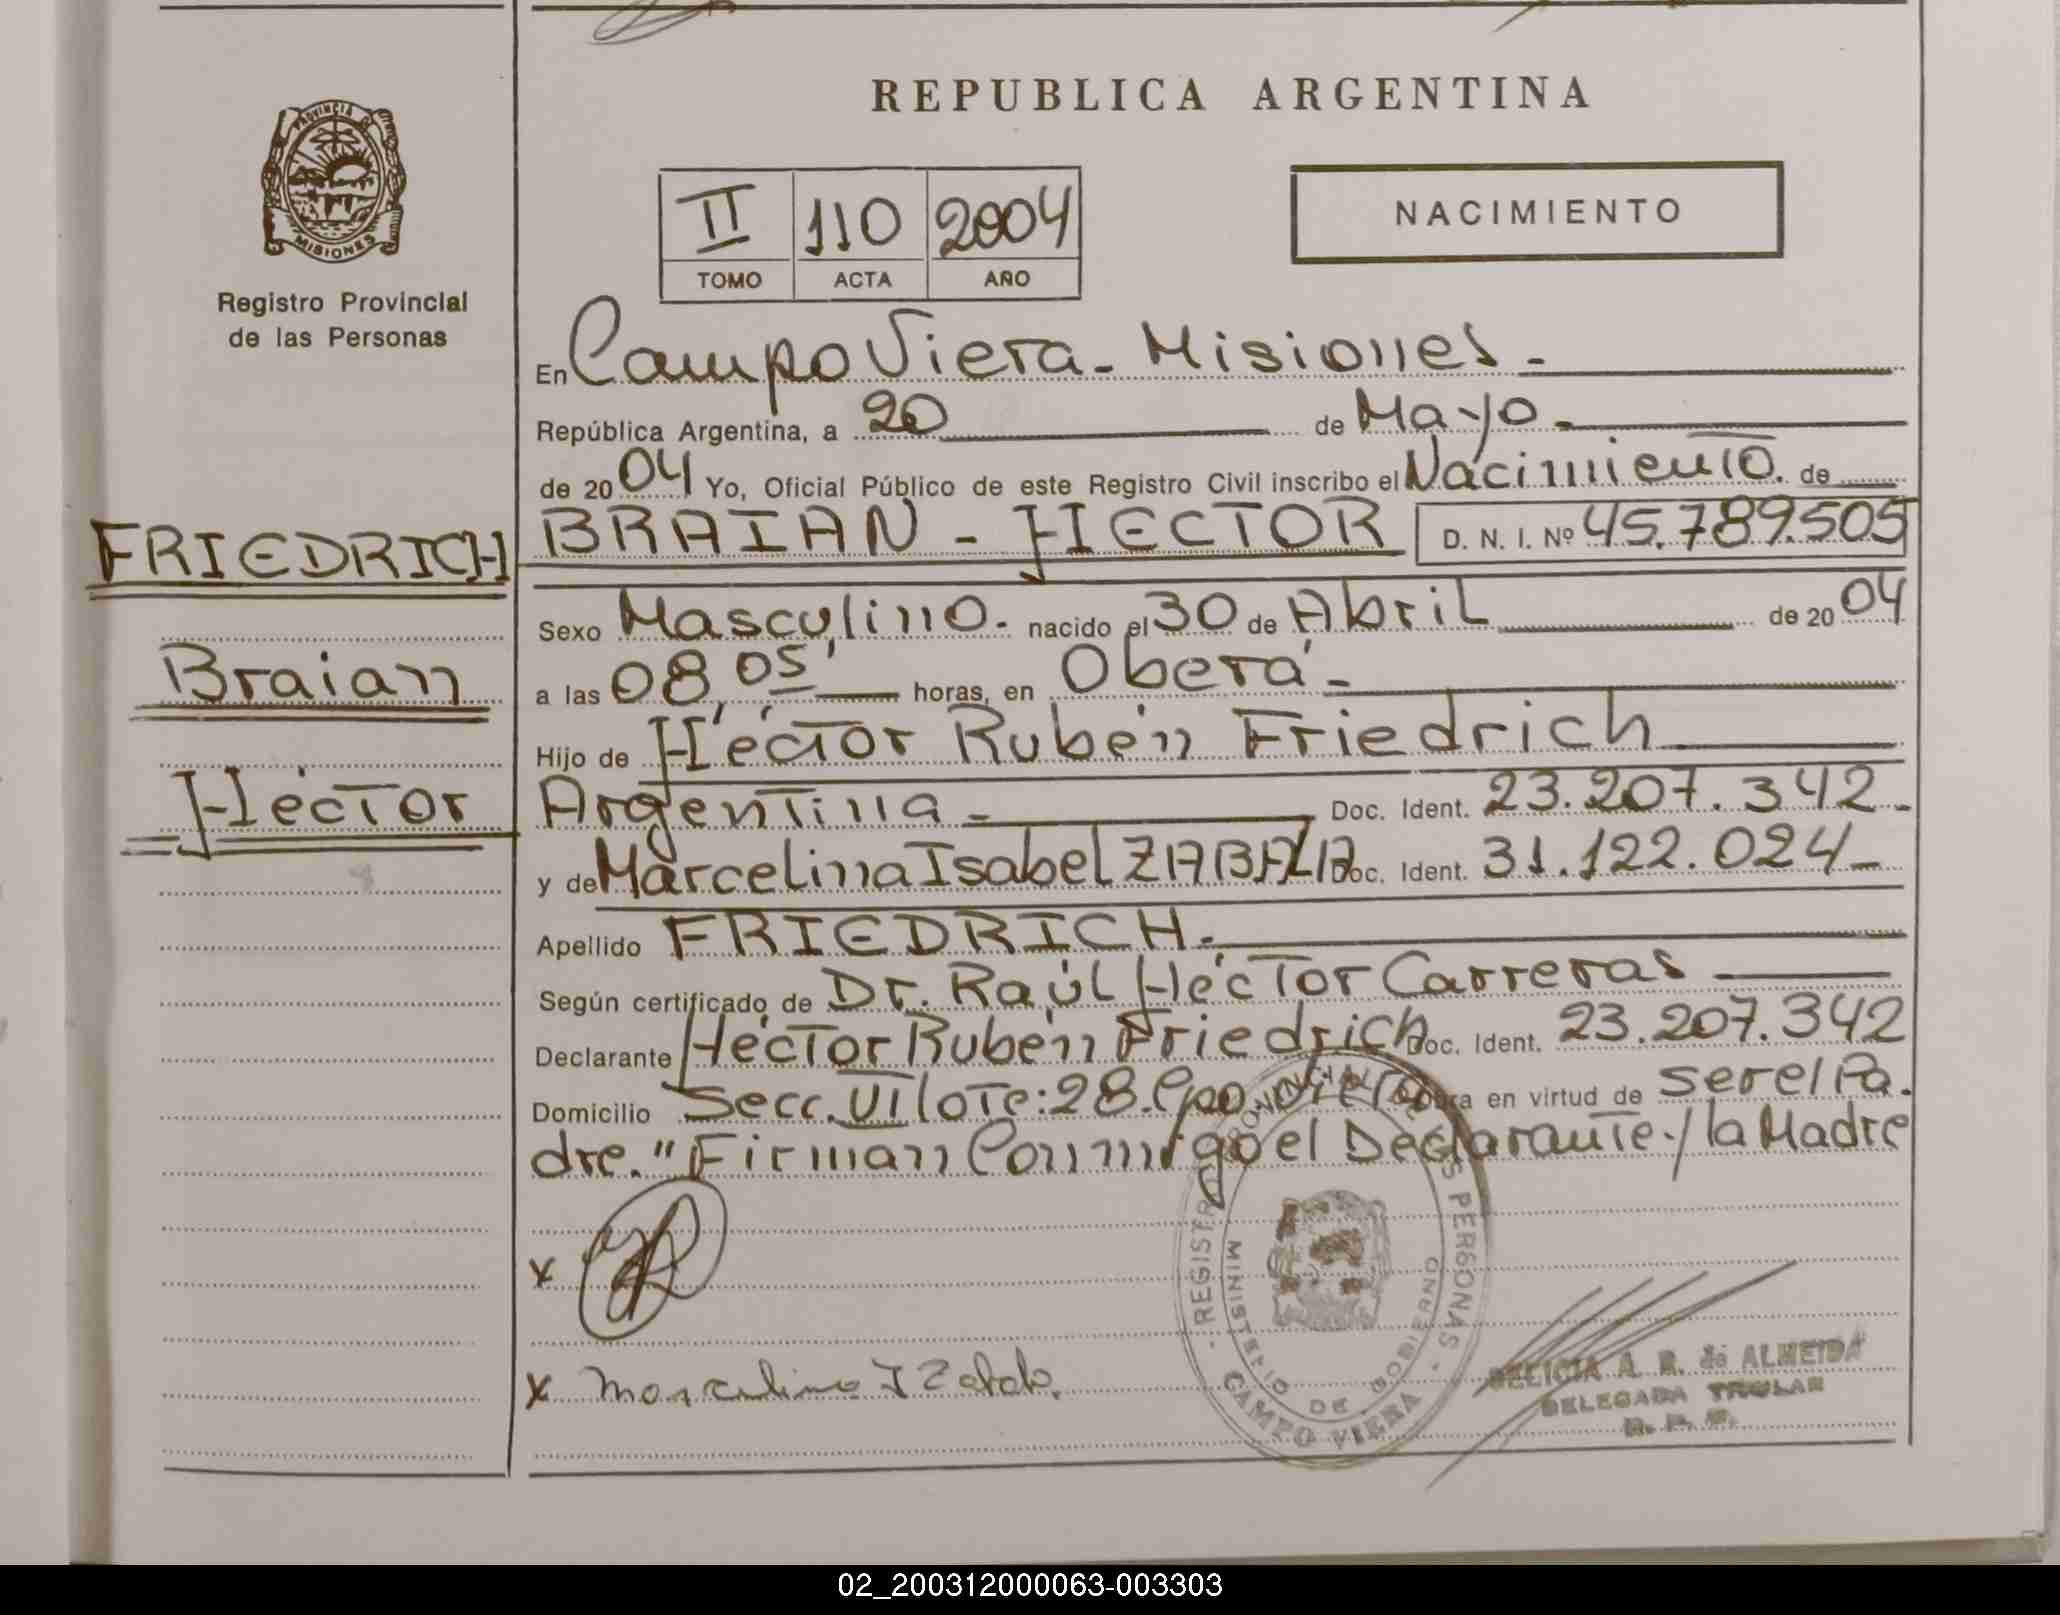 REPUBLICA ARGENTINA
PROVINCIA DE
MISIONES
Registro Provincial
de las Personas
II 110 2004
TOMO ACTA AÑO
NACIMIENTO
En Campo Viera - Misiones -
República Argentina, a 20 de Mayo -
de 2004 Yo, Oficial Público de este Registro Civil inscribo el Nacimiento. de
FRIEDRICH
BRAIAN - HECTOR D. N. I. Nº 45.789.505
Sexo Masculino. nacido el 30 de Abril de 2004
Braian
a las 08,05' horas, en Oberá -
Hijo de Héctor Rubén Friedrich
Héctor
Argentina - Doc. Ident. 23.207.342 -
y de Marcelina Isabel ZABALA Doc. Ident. 31.122.024 -
Apellido FRIEDRICH. -
Según certificado de Dr. Raúl Héctor Carreras
Declarante Héctor Rubén Friedrich Doc. Ident. 23.207.342
Domicilio Secc. VI lote: 28. Cpo. Viera Obra en virtud de ser el Pa.
dre. " Firman Conmigo el Declarante./ la Madre
x
x
REGISTRO PROVINCIAL DE LAS PERSONAS
MINISTERIO DE GOBIERNO
CAMPO VIERA
DELICIA A. R. de ALMEIDA
DELEGADA TITULAR
R. P. P.
02_200312000063-003303